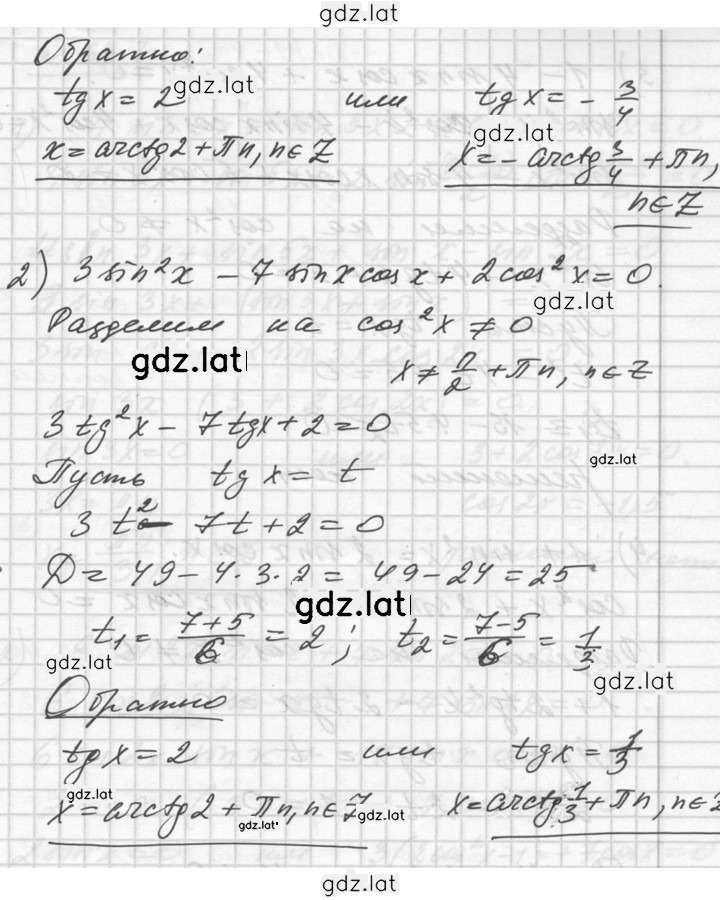 gdz.lat
Обратно:
gdz.lat
tg x = 2 или tg x = - 3/4
gdz.lat
x = arctg 2 + πn, n ∈ Z x = - arctg 3/4 + πn,
n ∈ Z
2) 3 sin²x - 7 sin x cos x + 2 cos² x = 0.
gdz.lat
Разделим на cos²x ≠ 0
gdz.lat
x ≠ π/2 + πn, n ∈ Z
3 tg²x - 7 tg x + 2 = 0
gdz.lat
Пусть tg x = t
3 t² - 7t + 2 = 0
D = 49 - 4·3·2 = 49 - 24 = 25
gdz.lat
t₁ = (7+5)/6 = 2 ; t₂ = (7-5)/6 = 1/3
gdz.lat
gdz.lat
Обратно
tg x = 2 или tg x = 1/3
gdz.lat
x = arctg 2 + πn, n ∈ Z x = arctg 1/3 + πn, n ∈ Z
gdz.lat
gdz.lat
gdz.lat